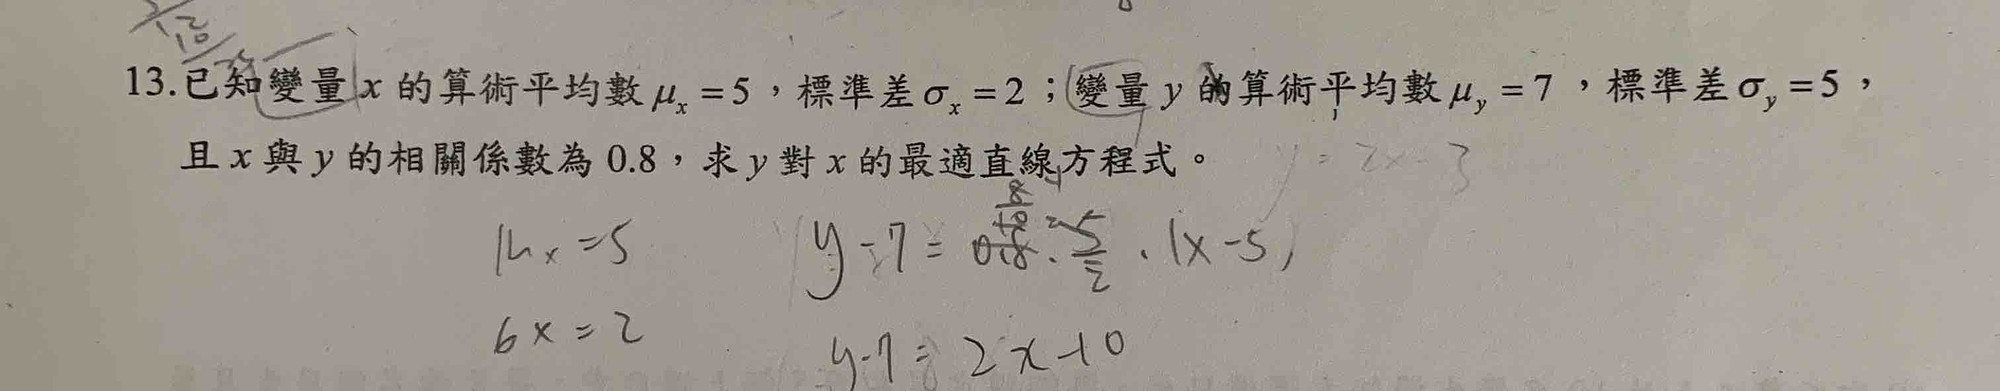 13.已知變量 x 的算術平均數 μx = 5，標準差 σx = 2；變量 y 的算術平均數 μy = 7，標準差 σy = 5，
且 x 與 y 的相關係數為 0.8，求 y 對 x 的最適直線方程式。
y = 2x - 3
μx = 5
y - 7 = 0.8 · 5/2 · (x - 5)
8/10
σx = 2
y - 7 = 2x - 10